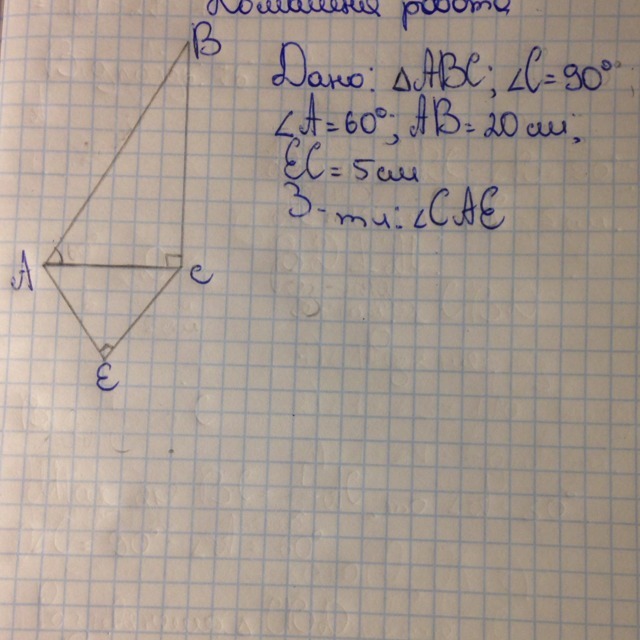 Домашня робота
B
Дано: △ABC; ∠C=90°
∠A=60°; AB=20 см;
EC=5см
З-ти: ∠CAE
A
C
E